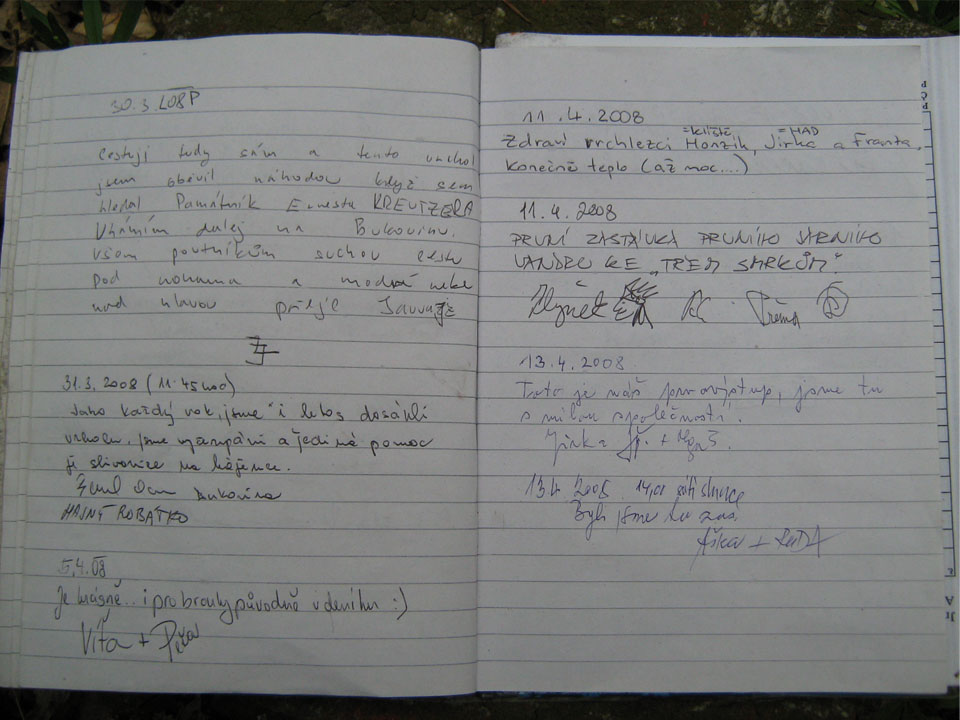 30.3. LO8P
cestuji tudy sám a tento vrchol
jsem objevil náhodou když sem
hledal Památník Ernesta KREUTZERA
Vnímím dálej na Bukovinu.
všem poutníkům suchou cestu
pod nohama a modrá nebe
nad hlavou přeje
31.3. 2008 (11.45 hod)
Jako každý rok, jsme i letos dosáhli
vrcholu, jsme vyčerpáni a jediná pomoc
je slivovice na
Bukovina
HAJNÝ ROBÁTKO
5.4.08
Je krásně.. i pro brouky původně v deníku :)
Víťa + Péťa
11.4.2008
=klíště =HAD
Zdraví vrchlezci Honzík, Jirka a Franta.
Konečně teplo (až moc....)
11.4.2008
PRVNÍ ZASTÁVKA PRVNÍHO JARNÍHO
VANDRU KE „TŘEM SMRKŮM"
Hlynek
13.4.2008.
Toto je náš prvovýstup, jsme tu
s milou společností.
Jirka
13.4 2008 14,01 svítí slunce
Byli jsme tu zas.